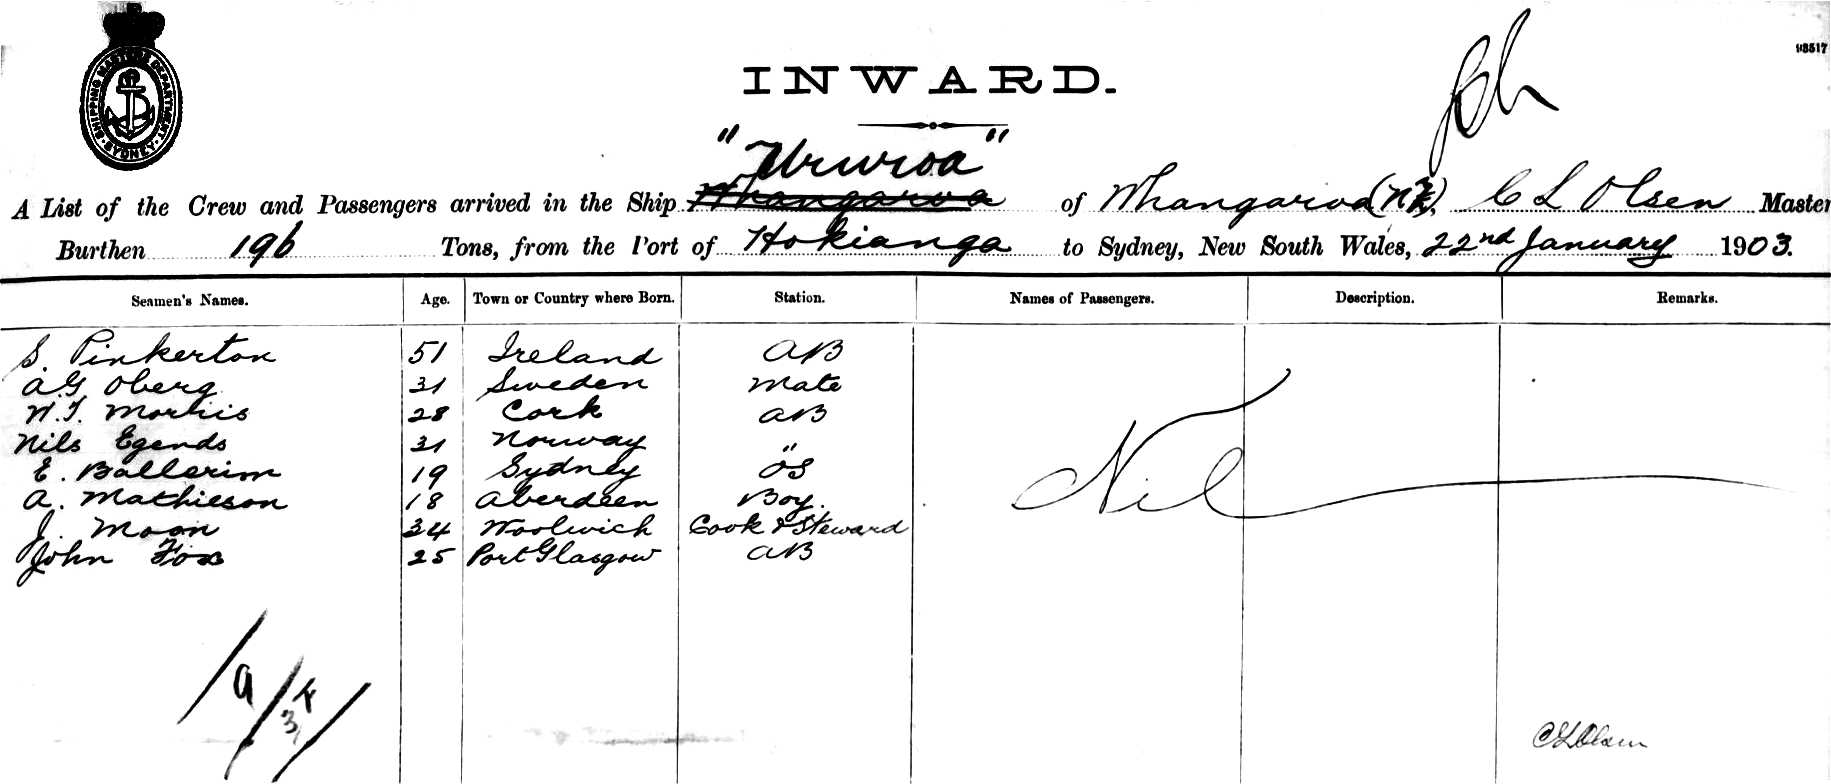 SHIPPING MASTERS DEPARTMENT
SYDNEY
93517
INWARD.
"Ururoa"
A List of the Crew and Passengers arrived in the Ship Whangaroa of Whangaroa (NZ), C L Olsen Master
Burthen 196 Tons, from the Port of Hokianga to Sydney, New South Wales, 22nd January 1903.
Seamen's Names. Age. Town or Country where Born. Station. Names of Passengers. Description. Remarks.
S. Pinkerton 51 Ireland AB
A G Oberg 31 Sweden Mate
W. T. Morris 28 Cork AB
Nils Egends 31 Norway "
E. Ballerim 19 Sydney OS
A. Mathieson 18 Aberdeen Boy.
J. Moon 34 Woolwich Cook & Steward
John Fox 25 Port Glasgow AB
Nil
C L Olsen